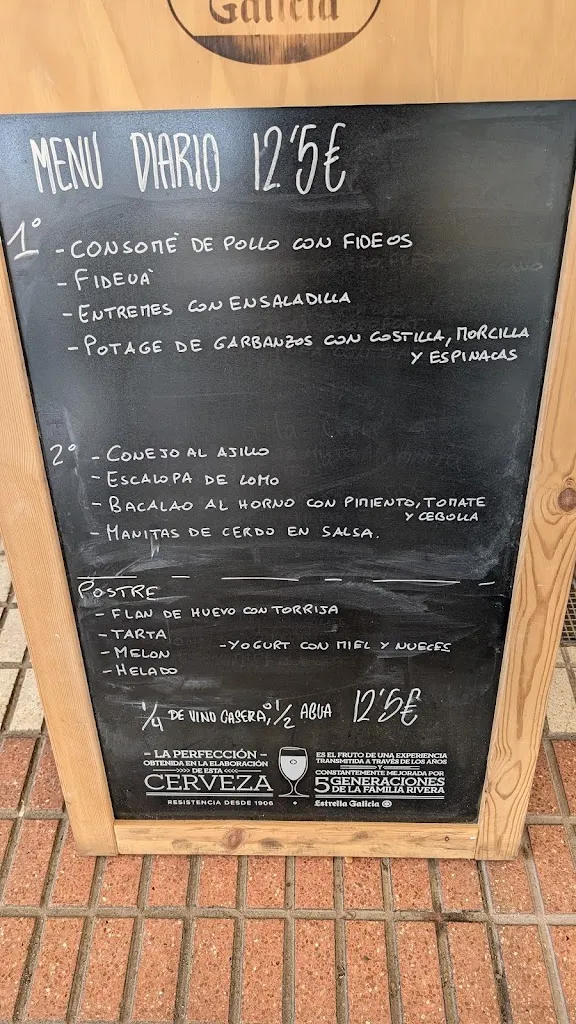 Galicia
MENÚ DIARIO 12'5€
1º
- CONSOMÈ DE POLLO CON FIDEOS
- FIDEUÀ
- ENTREMES CON ENSALADILLA
- POTAGE DE GARBANZOS CON COSTILLA, MORCILLA
Y ESPINACAS
2º
- CONEJO AL AJILLO
- ESCALOPA DE LOMO
- BACALAO AL HORNO CON PIMIENTO, TOMATE
Y CEBOLLA
- MANITAS DE CERDO EN SALSA.
POSTRE
- FLAN DE HUEVO CON TORRIJA
- TARTA
- MELON - YOGURT CON MIEL Y NUECES
- HELADO
1/4 DE VINO GASERA, o 1/2 AGUA 12'5€
- LA PERFECCIÓN -
OBTENIDA EN LA ELABORACIÓN
DE ESTA
CERVEZA
RESISTENCIA DESDE 1906
ES EL FRUTO DE UNA EXPERIENCIA
TRANSMITIDA A TRAVÉS DE LOS AÑOS
Y
CONSTANTEMENTE MEJORADA POR
5 GENERACIONES
DE LA FAMILIA RIVERA
Estrella Galicia